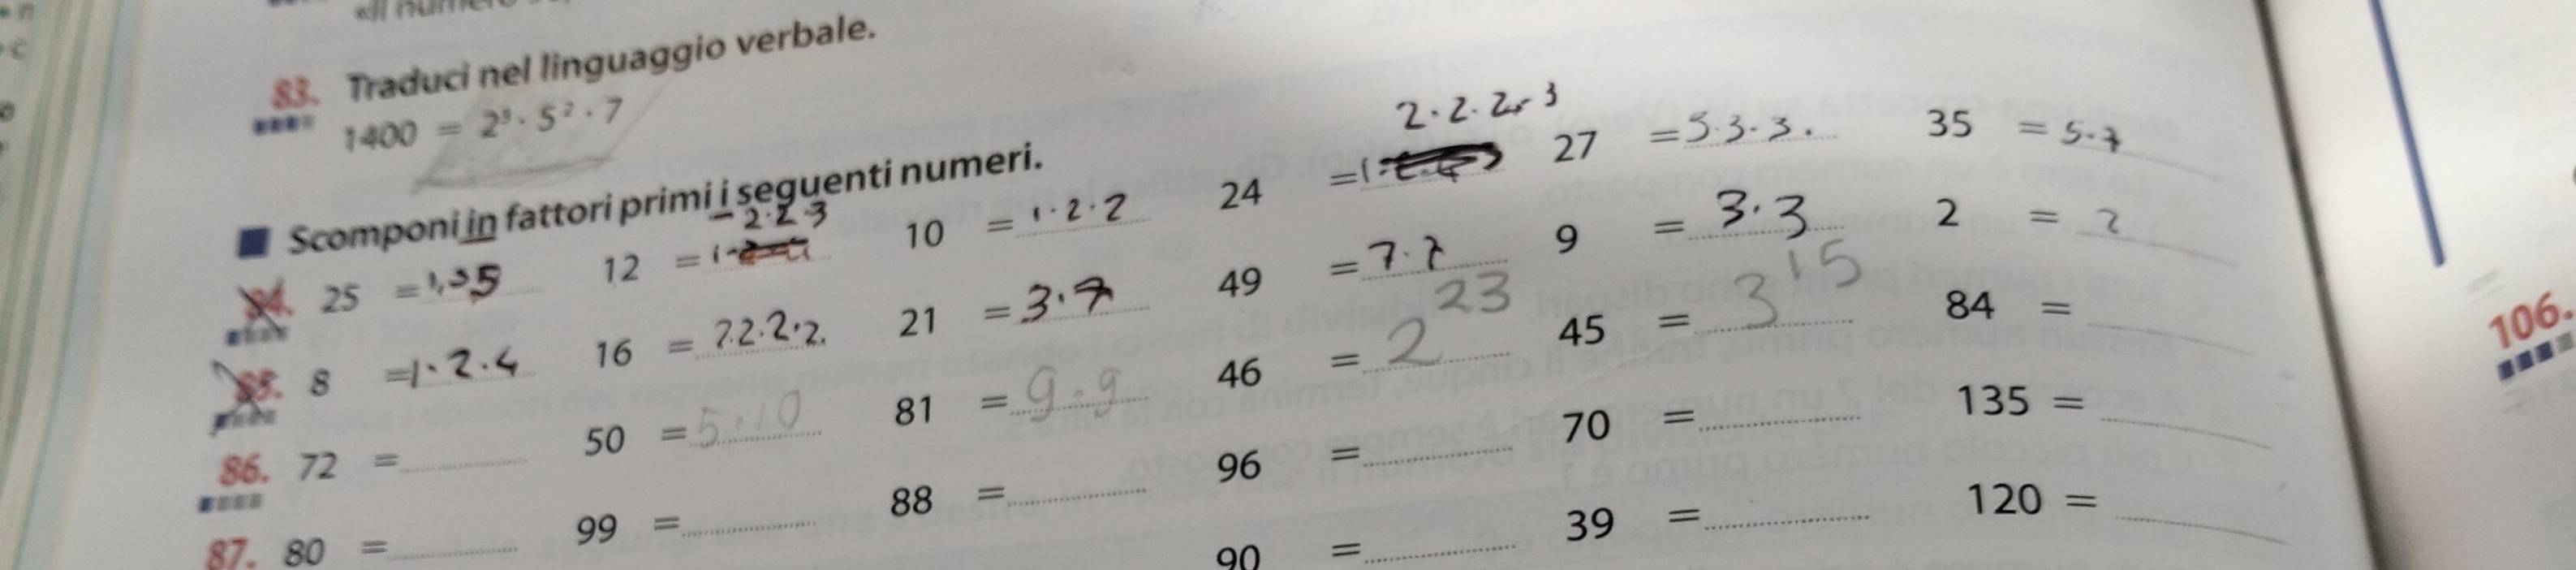 «Il numero
83. Traduci nel linguaggio verbale.
1400 = 2³ · 5² · 7
Scomponi in fattori primi i seguenti numeri.
84. 25 = 12 = 2·2·3 10 = 1·2·2 24 = 2·2·2·3 27 = 3·3·3. 35 = 5·7
85. 8 = 1·2·4 16 = 2·2·2·2. 21 = 3·7 49 = 7·7 9 = 3·3 2 = 2
86. 72 = 50 = 5·10 81 = 9·9 46 = 2 23 45 = 3 15 84 =
87. 80 = 99 = 88 = 96 = 70 = 135 =
90 = 39 = 120 =
106.